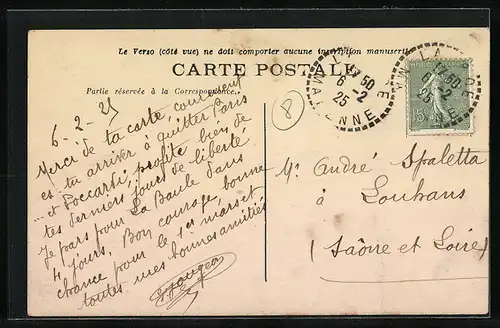 Le Verso (côté vue) ne doit comporter aucune inscription manuscrite
CARTE POSTALE
Partie réservée à la Correspondance.
6-2-25
Merci de ta carte comment
es-tu arrivé à quitter Paris
et Poccardi, profite bien de
tes derniers jours de liberté
Je pars pour La Baule dans
4 jours. Bon courage, bonne
chance pour le 1er mars et
toutes mes bonnes amitiés
8
17 50
6 -2
25
MAYENNE
17 50
6 -2
25
15
Mr André Spaletta
à
Louhans
(Saône et Loire)